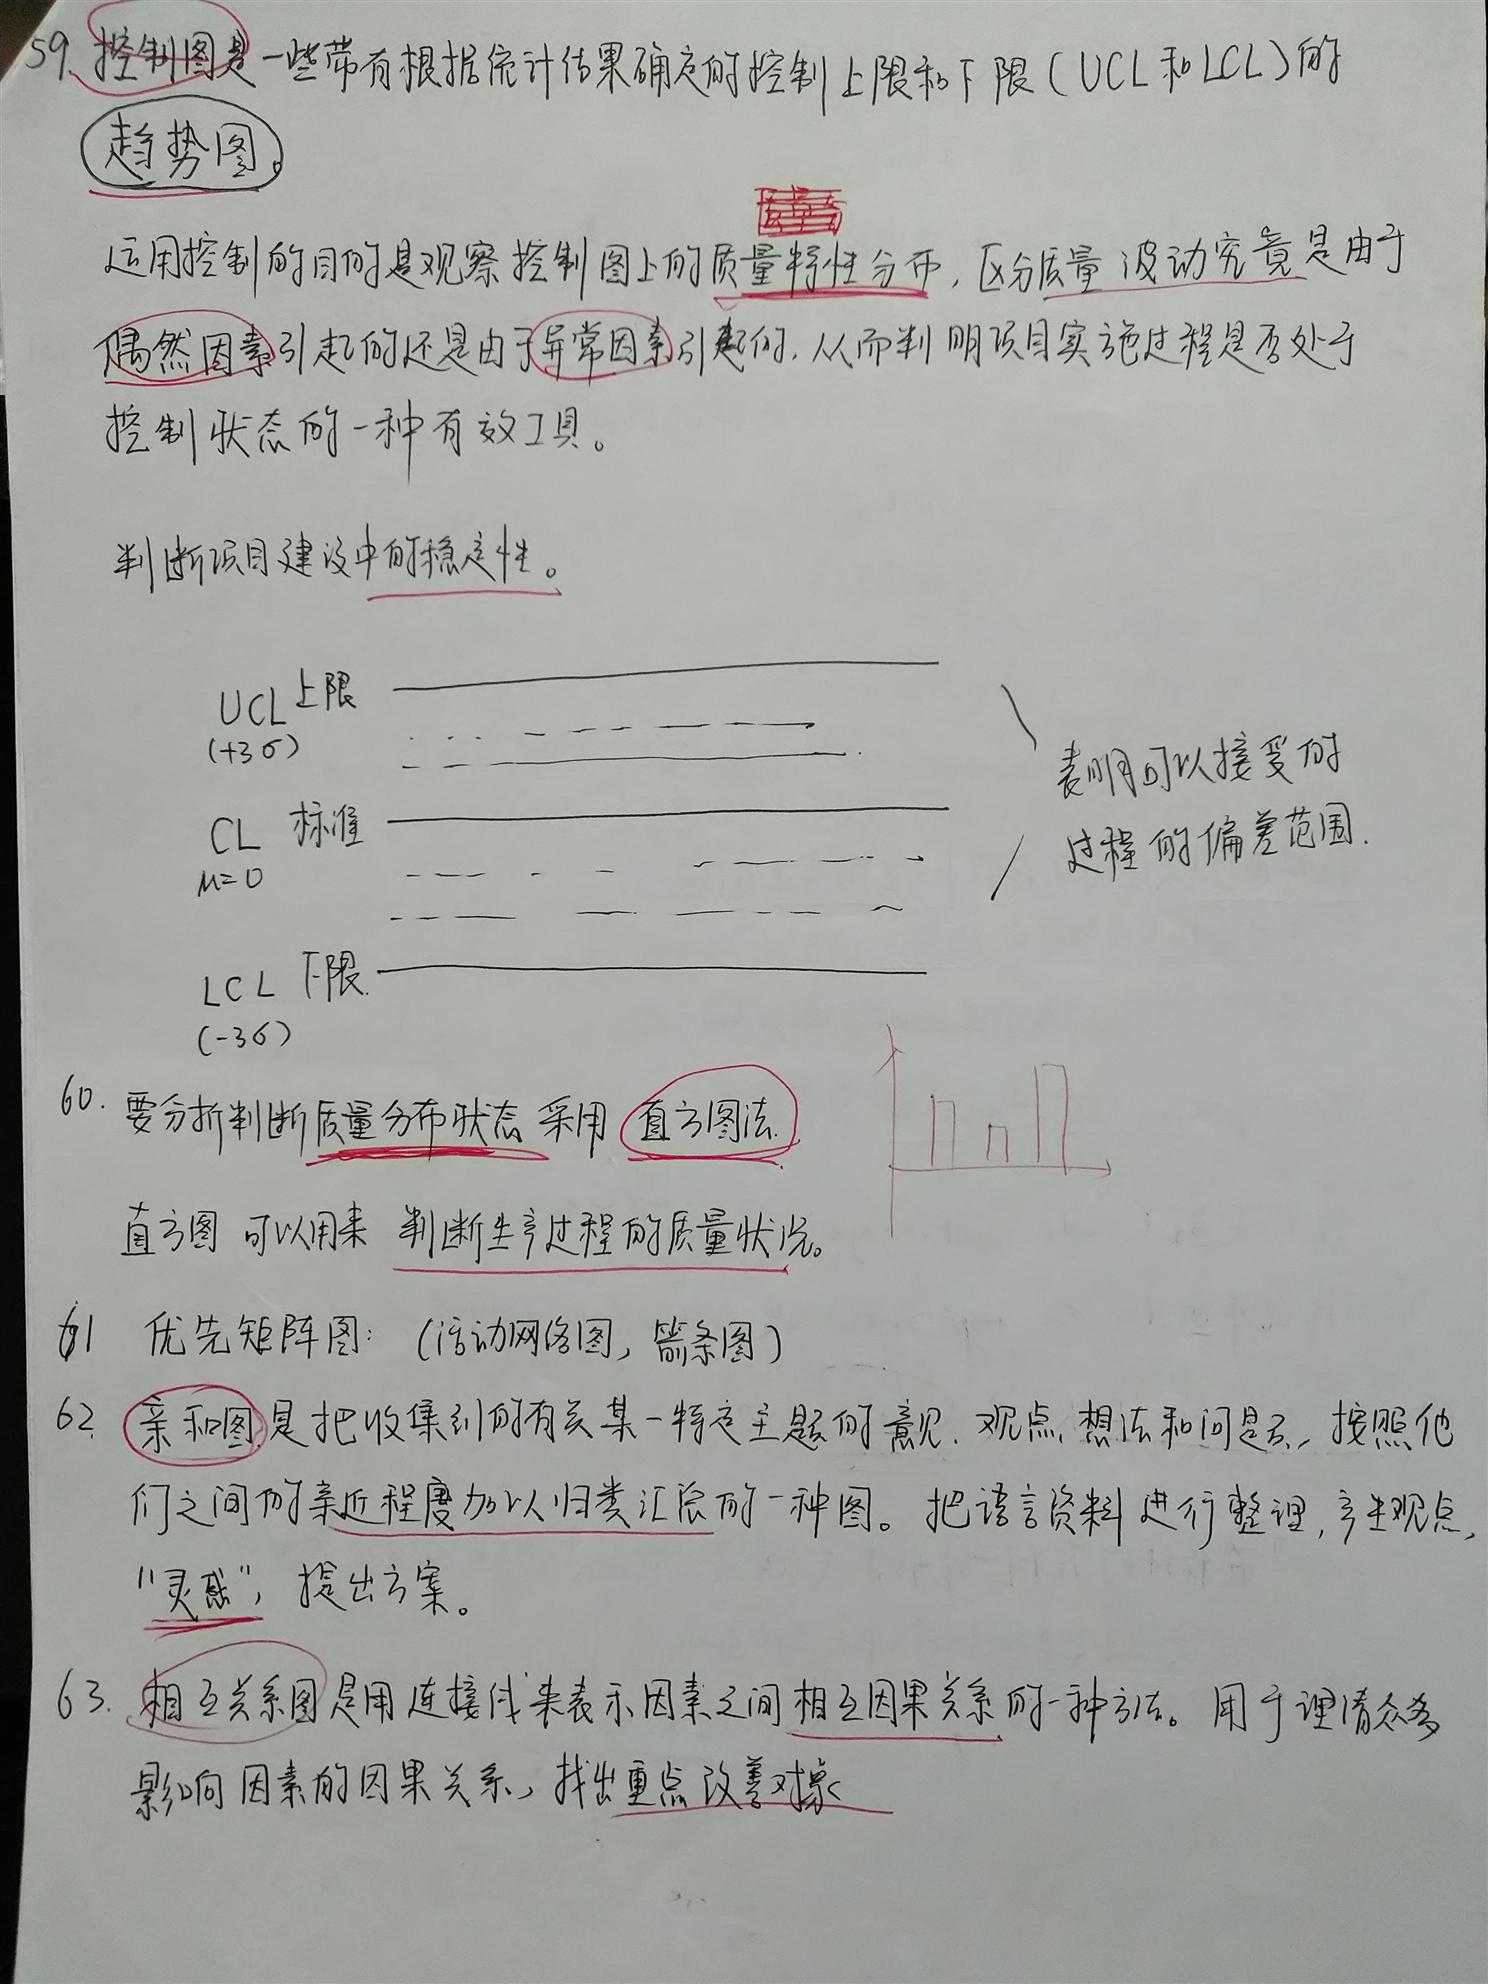 59. 控制图是一些带有根据统计结果确定的控制上限和下限（UCL和LCL）的
趋势图。
运用控制的目的是观察控制图上的质量特性分布，区分质量波动究竟是由于
偶然因素引起的还是由于异常因素引起的，从而判明项目实施过程是否处于
控制状态的一种有效工具。
判断项目建设中的稳定性。
UCL 上限
(+3σ)
表明可以接受的
CL 标准
过程的偏差范围.
μ=0
LCL 下限.
(-3σ)
60. 要分析判断质量分布状态 采用 直方图法.
直方图 可以用来 判断生产过程的质量状况。
61 优先矩阵图：（活动网络图，箭条图）
62. 亲和图是把收集到的有关某一特定主题的意见、观点、想法和问题，按照他
们之间的亲近程度加以归类汇总的一种图。把语言资料进行整理，产生观点，
“灵感”，提出方案。
63. 相互关系图是用连接线来表示因素之间相互因果关系的一种方法。用于理清众多
影响因素的因果关系，找出重点改善对象